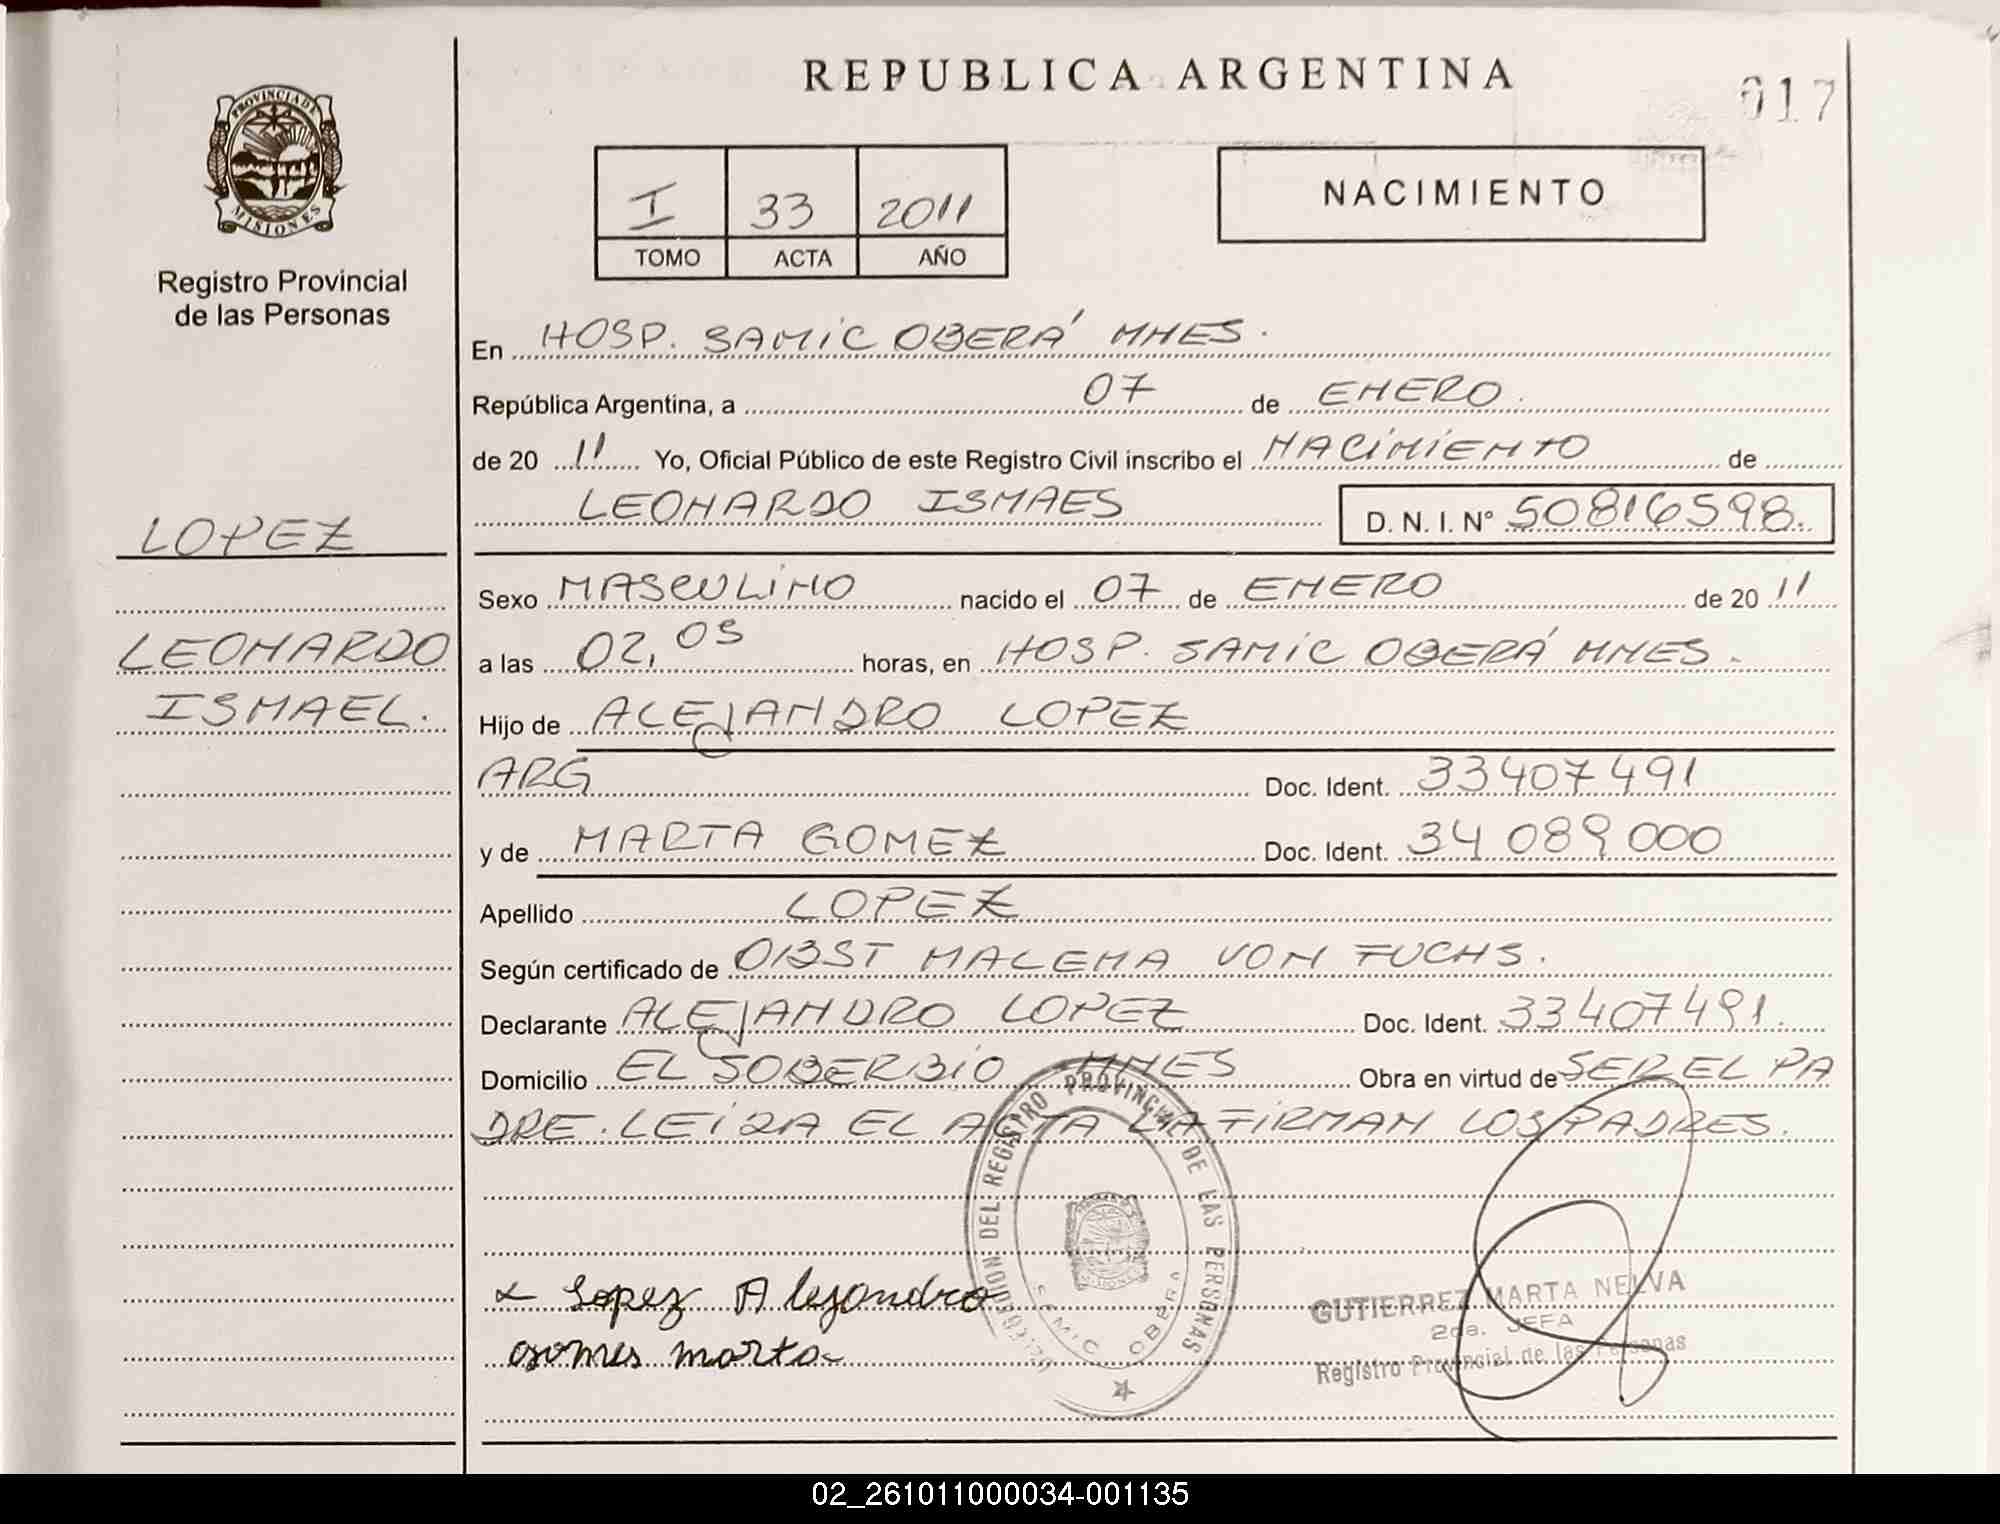 REPUBLICA ARGENTINA
017
PROVINCIA DE
MISIONES
Registro Provincial
de las Personas
I 33 2011
TOMO ACTA AÑO
NACIMIENTO
En HOSP. SAMIC OBERÁ MNES.
República Argentina, a 07 de ENERO.
de 20 11 Yo, Oficial Público de este Registro Civil inscribo el NACIMIENTO de
LEONARDO ISMAES D. N. I. N° 50816598.
LOPEZ
LEONARDO
ISMAEL.
Sexo MASCULINO nacido el 07 de ENERO de 20 11
a las 02,05 horas, en HOSP. SAMIC OBERÁ MNES.
Hijo de ALEJANDRO LOPEZ
ARG Doc. Ident. 33407491
y de MARTA GOMEZ Doc. Ident. 34 089 000
Apellido LOPEZ
Según certificado de OBST MALENA VON FUCHS.
Declarante ALEJANDRO LOPEZ Doc. Ident. 33407491.
Domicilio EL SOBERBIO MNES Obra en virtud de SER EL PA
DRE. LEIDA EL ACTA LA FIRMAN LOS PADRES.
DEL REGISTRO PROVINCIAL DE LAS PERSONAS
MISIONES
SAMIC OBERA
Lopez Alejandro
gomes marta
GUTIERREZ MARTA NELVA
2da. JEFA
Registro Provincial de las Personas
02_261011000034-001135